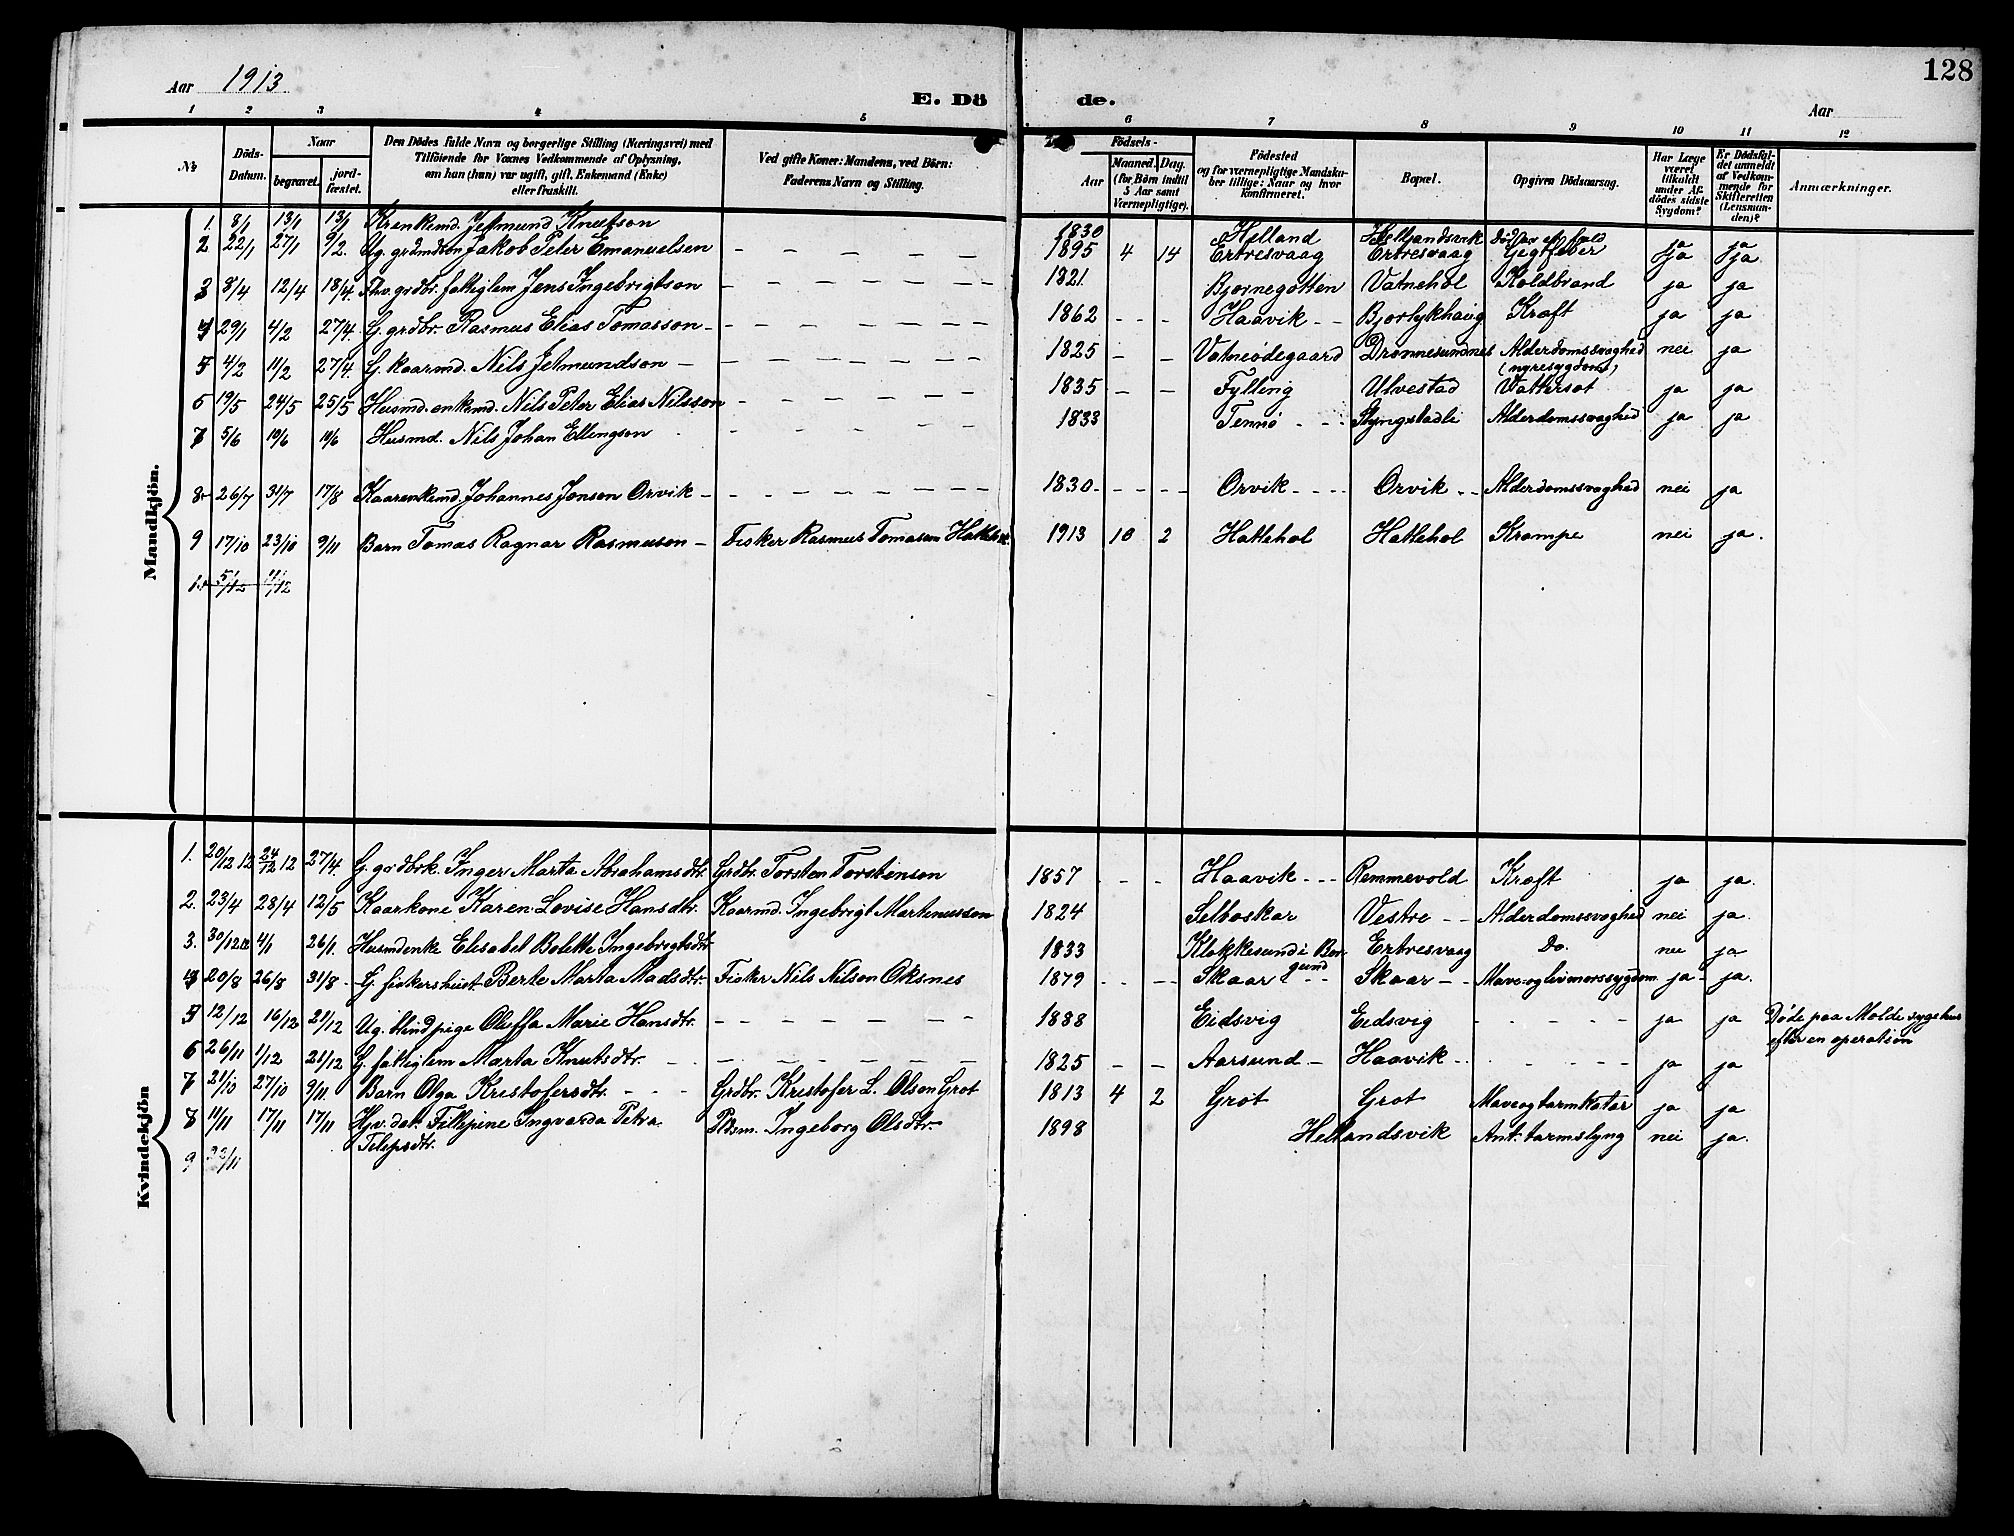 128
Aar 1913
E. Dö
de.
Aar
1 2 3 4 5
6 7 8 9 10 11 12
No
Döds-Datum.
Naar
begravet.
jordfæstet.
Den Dödes fulde Navn og borgerlige Stilling (Næringsvei) med
Tilföiende for Voxnes Vedkommende af Oplysning,
om han (hun) var ugift, gift, Enkemand (Enke)
eller fraskilt.
Ved gifte Koner: Mandens, ved Börn:
Faderens Navn og Stilling.
Födsels-
Aar
Maaned. Dag.
(for Börn indtil
5 Aar samt
Værnepligtige).
Födested
og for værnepligtige Mandska-
ber tillige: Naar og hvor
konfirmeret.
Bopæl.
Opgiven Dödsaarsag.
Har Læge
været
tilkaldt
under Af-
dödes sidste
Sygdom?
Er Dödsfal-
det anmeldt
af Vedkom-
mende for
Skifteretten
(Lensman-
den)?
Anmærkninger.
Mandkjön.
1. 8/1 13/1 13/1 Jetmund Knutson 1830 Helland Hellandsvik ja ja
2 22/1 27/1 9/2. Ug. grdmdsøn Jakob Peter Emanuelsen – – – – – 1895 4 14 Ertresvaag Ertresvaag Gigtfeber ja ja
3 8/4 12/4 18/4. Fhv. grdbr. fattiglem Jens Ingebrigtson – – – – – 1821 Bjørnegotten Vatnehol Koldbrand ja ja
4 29/1 4/2 27/4. G. grdbr. Rasmus Elias Tomasson – – – – – 1862 – – Haavik – – Bjørlykhaug Kræft ja ja
5 4/2 11/2 27/4. G. kaarmd. Nils Jetmundson – – – – – 1825 – – Vatneødegaard Drønnesundnes Alderdomssvaghed nei ja
(nyresygdom)
6 19/5 24/5 25/5 Husmd. enkemd. Nils Peter Elias Nilsson – – – – 1835 – – Fylling Ulvestad Vattersot ja ja
7 5/6 10/6 10/6 Husmd. Nils Johan Ellingson – – – – – 1833 Tennø – – Slyngstadli Alderdomssvaghed ja ja
8. 26/7 31/7 17/8 Kaarenkemd. Johannes Jonsen Orvik – – – – – 1830 – – – Orvik – – Orvik – – Alderdomssvaghed nei ja
9 17/10 23/10 9/11 Barn Tomas Ragnar Rasmuson – Fisker Rasmus Tomason 1913 10 2 Hattehol Hattehol Krampe nei ja.
10 5/12 11/12
Kvindekjön
1. 20/12 12 24/12 12 27/4. G. grdbrk. Inger Marta Abrahamsdtr. Grdbr. Torsten Torstenson 1857 – – Haavik – – Remmevold Kræft ja ja.
2. 23/4 28/4 12/5 Kaarkone Karen Lovise Hansdtr. Kaarmd. Ingebrigt Martinusson 1824 Selboskar Vestre – – Alderdomssvaghed nei ja.
3. 30/12 12 4/1 26/1. Husmdenke Elisabet Bolette Ingebrigtsdtr 1833 Klokkesund i Bor-
gund Ertresvaag Do. nei ja
4 20/8 26/8 31/8 – G. fiskershust. Berte Marta Madsdtr. Fisker Nils Nilson Oksnes 1879 – – – – Skaar – – Skaar – – Mave- og livmorssygdom ja – ja.
5 12/12 16/12 21/12 Ug. blindpige Oluffa Marie Hansdtr. – – – – – 1888 Eidsvig Eidsvig – – – – ja ja Døde paa Molde sygehus
efter en operation
6 26/11 1/12 21/12 G. fattiglem Marta Knutsdtr. – – – – – – 1825 – – Aarsund – Haavik – – – – – ja ja
7 21/10 27/10 9/11. Barn Olga Kristofersdtr. – – – Grdbr. Kristofer L. Olson Grot 1813 4 2 Grot Grot Mave og tarmkatar ja ja
8 11/11 17/11 17/11 Hjv. dat. Filipine Ingvarda Petra
Filipsdtr. Ingeborg Olsdtr 1898 Hellandsvik Ant. tarmslyng nei ja.
9 23/11